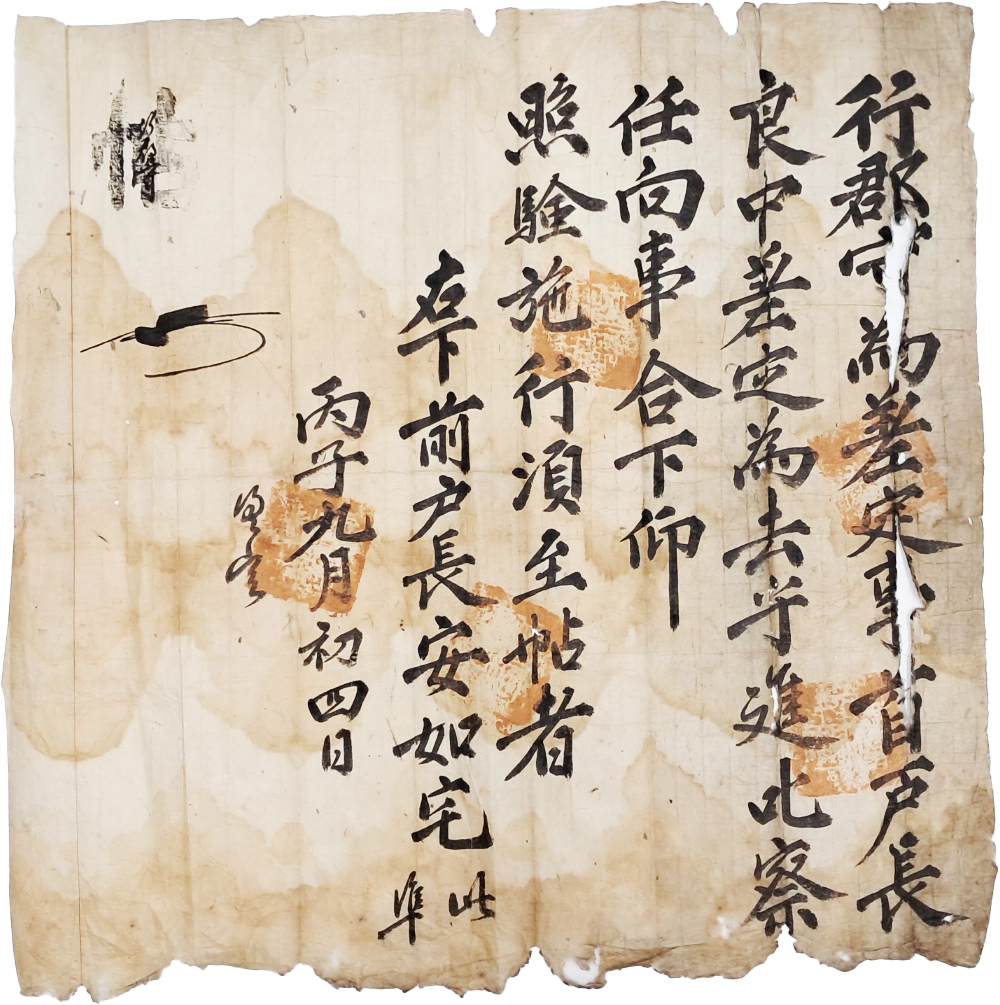 行郡守為差定事首戶長
良中差定為去乎進叱察
任向事合下仰
照験施行須至帖者
右下前戶長安如宅 此準
丙子九月初四日
帖